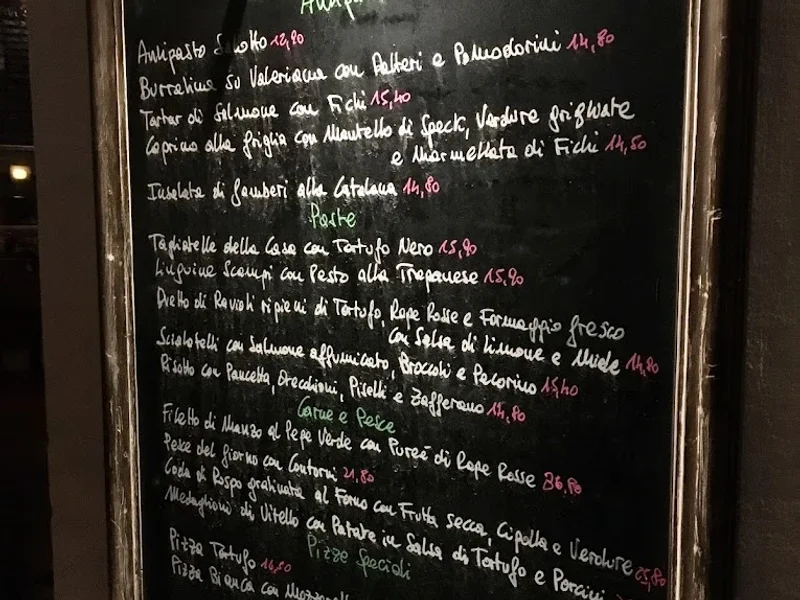 Antipasto Salotto 12,80
Burratina su Valeriana con Datteri e Pomodorini 14,80
Tartar di Salmone con Fichi 15,40
Caprino alla griglia con Mantello di Speck, Verdure grigliate
e Marmellata di Fichi 14,50
Insalata di Gamberi alla Catalana 14,80
Paste
Tagliatelle della Casa con Tartufo Nero 15,90
Linguine Scampi con Pesto alla Trapanese 15,90
Duetto di Ravioli ripieni di Tartufo, Rape Rosse e Formaggio fresco
con Salsa di Limone e Miele 14,80
Scialatelli con Salmone affumicato, Broccoli e Pecorino 15,40
Risotto con Pancetta, Orecchioni, Piselli e Zafferano 14,80
Carne e Pesce
Filetto di Manzo al Pepe Verde con Pureé di Rape Rosse
Pesce del giorno con Contorni 21,80
Coda di Rospo gratinata al Forno con Frutta secca, Cipolla e Verdure 25,80
Medaglioni di Vitello con Patate in Salsa di Tartufo e Porcini
Pizze Speciali
Pizza Tartufo
Pizza Bianca con